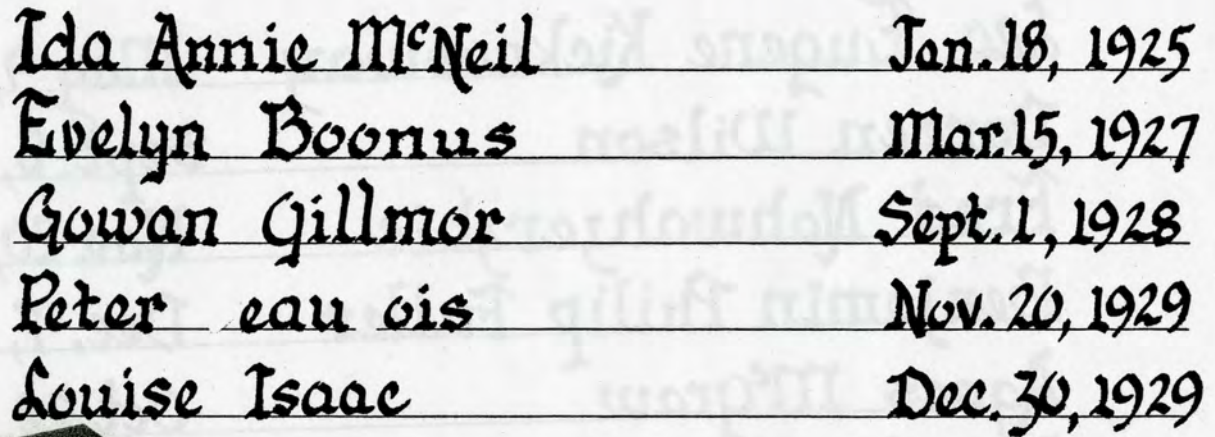 Ida Annie McNeil Jan. 18, 1925
Evelyn Boonus Mar. 15, 1927
Gowan Gillmor Sept. 1, 1928
Peter eau ois Nov. 20, 1929
Louise Isaac Dec. 30, 1929